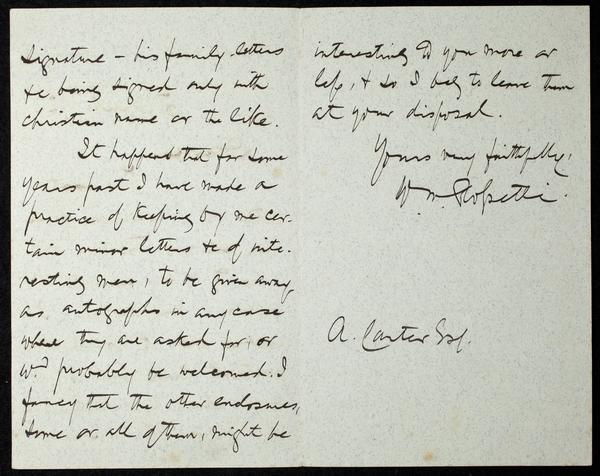 signature – his family letters
&c being signed only with
christian name or the like.
It happens that for some
years past I have made a
practice of keeping by me cer-
tain minor letters &c of inte-
resting men, to be given away
as autographs in any case
where they are asked for, or
wd. probably be welcomed. I
fancy that the other enclosures,
some or all of them, might be
interesting to you more or
less, & so I beg to leave them
at your disposal.
Yours very faithfully,
W. M. Rossetti.
A. Carter Esq.